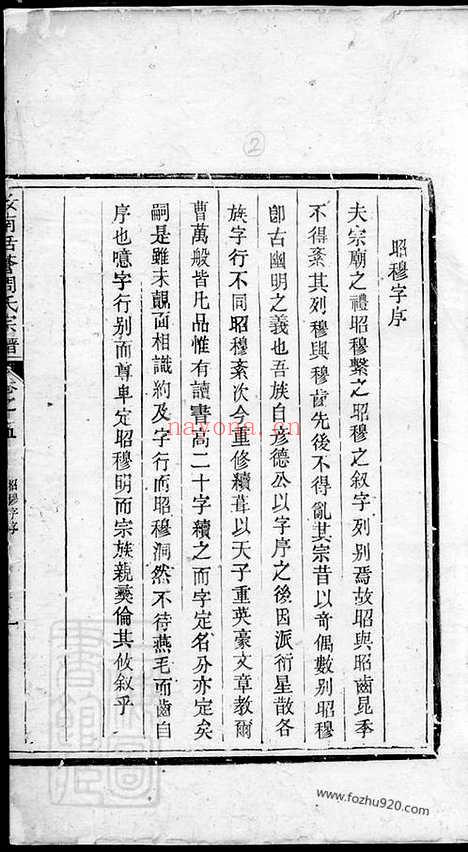 ②
昭穆字序
夫宗廟之禮昭穆繫之昭穆之叙字列别焉故昭與昭齒昆季
不得紊其列穆與穆齒先後不得亂其宗昔以奇偶數别昭穆
卽古幽明之義也吾族自彦德公以字序之後因派衍星散各
族字行不同昭穆紊次今重修續葺以天子重英豪文章教爾
曹萬般皆凡品惟有讀書高二十字續之而字定名分亦定矣
嗣是雖未覿面相識約及字行而昭穆洞然不待燕毛而齒自
序也噫字行别而尊卑定昭穆明而宗族親彝倫其攸叙乎
南
周氏宗譜
卷之五
昭穆字序
一
書圖
館
nayona.cn
www.fozhu920.com